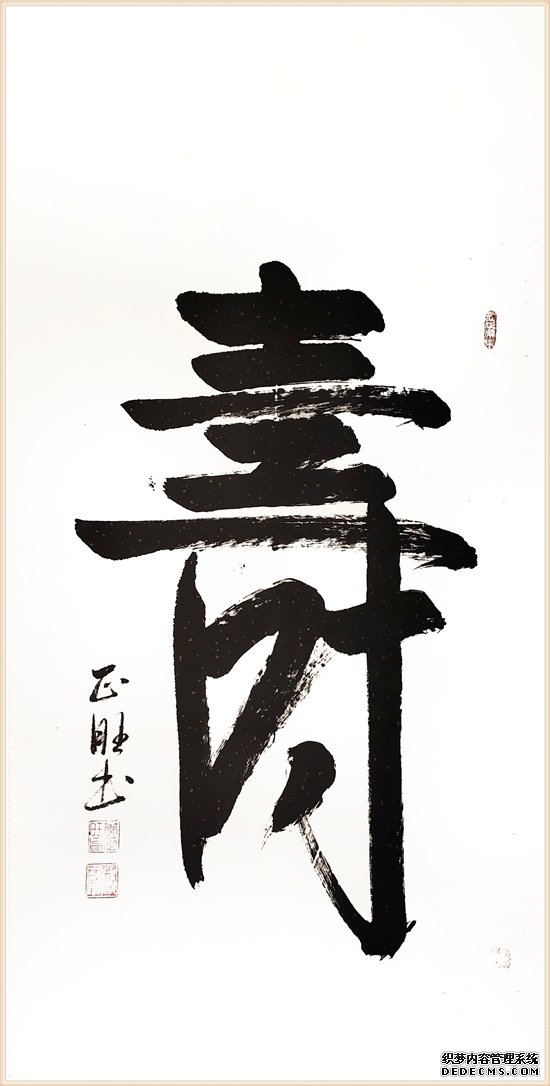 壽
正胜书
织梦内容管理系统
DEDECMS.COM